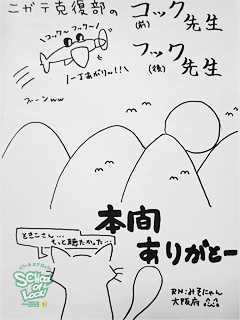 ニガテ克復部の
コック先生
(前)
フック先生
(後)
コック〜フック〜
一丁あがりー!!
ブーンww
本間
ありがとー
ときこさん…
もっと聴きたかった…
SCHOOL OF LOCK!
RN:みそにゃん
大阪府